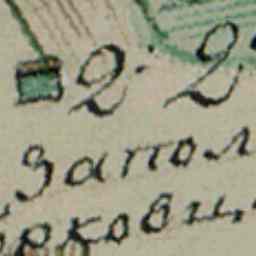 2. 2
Запол
рковц.